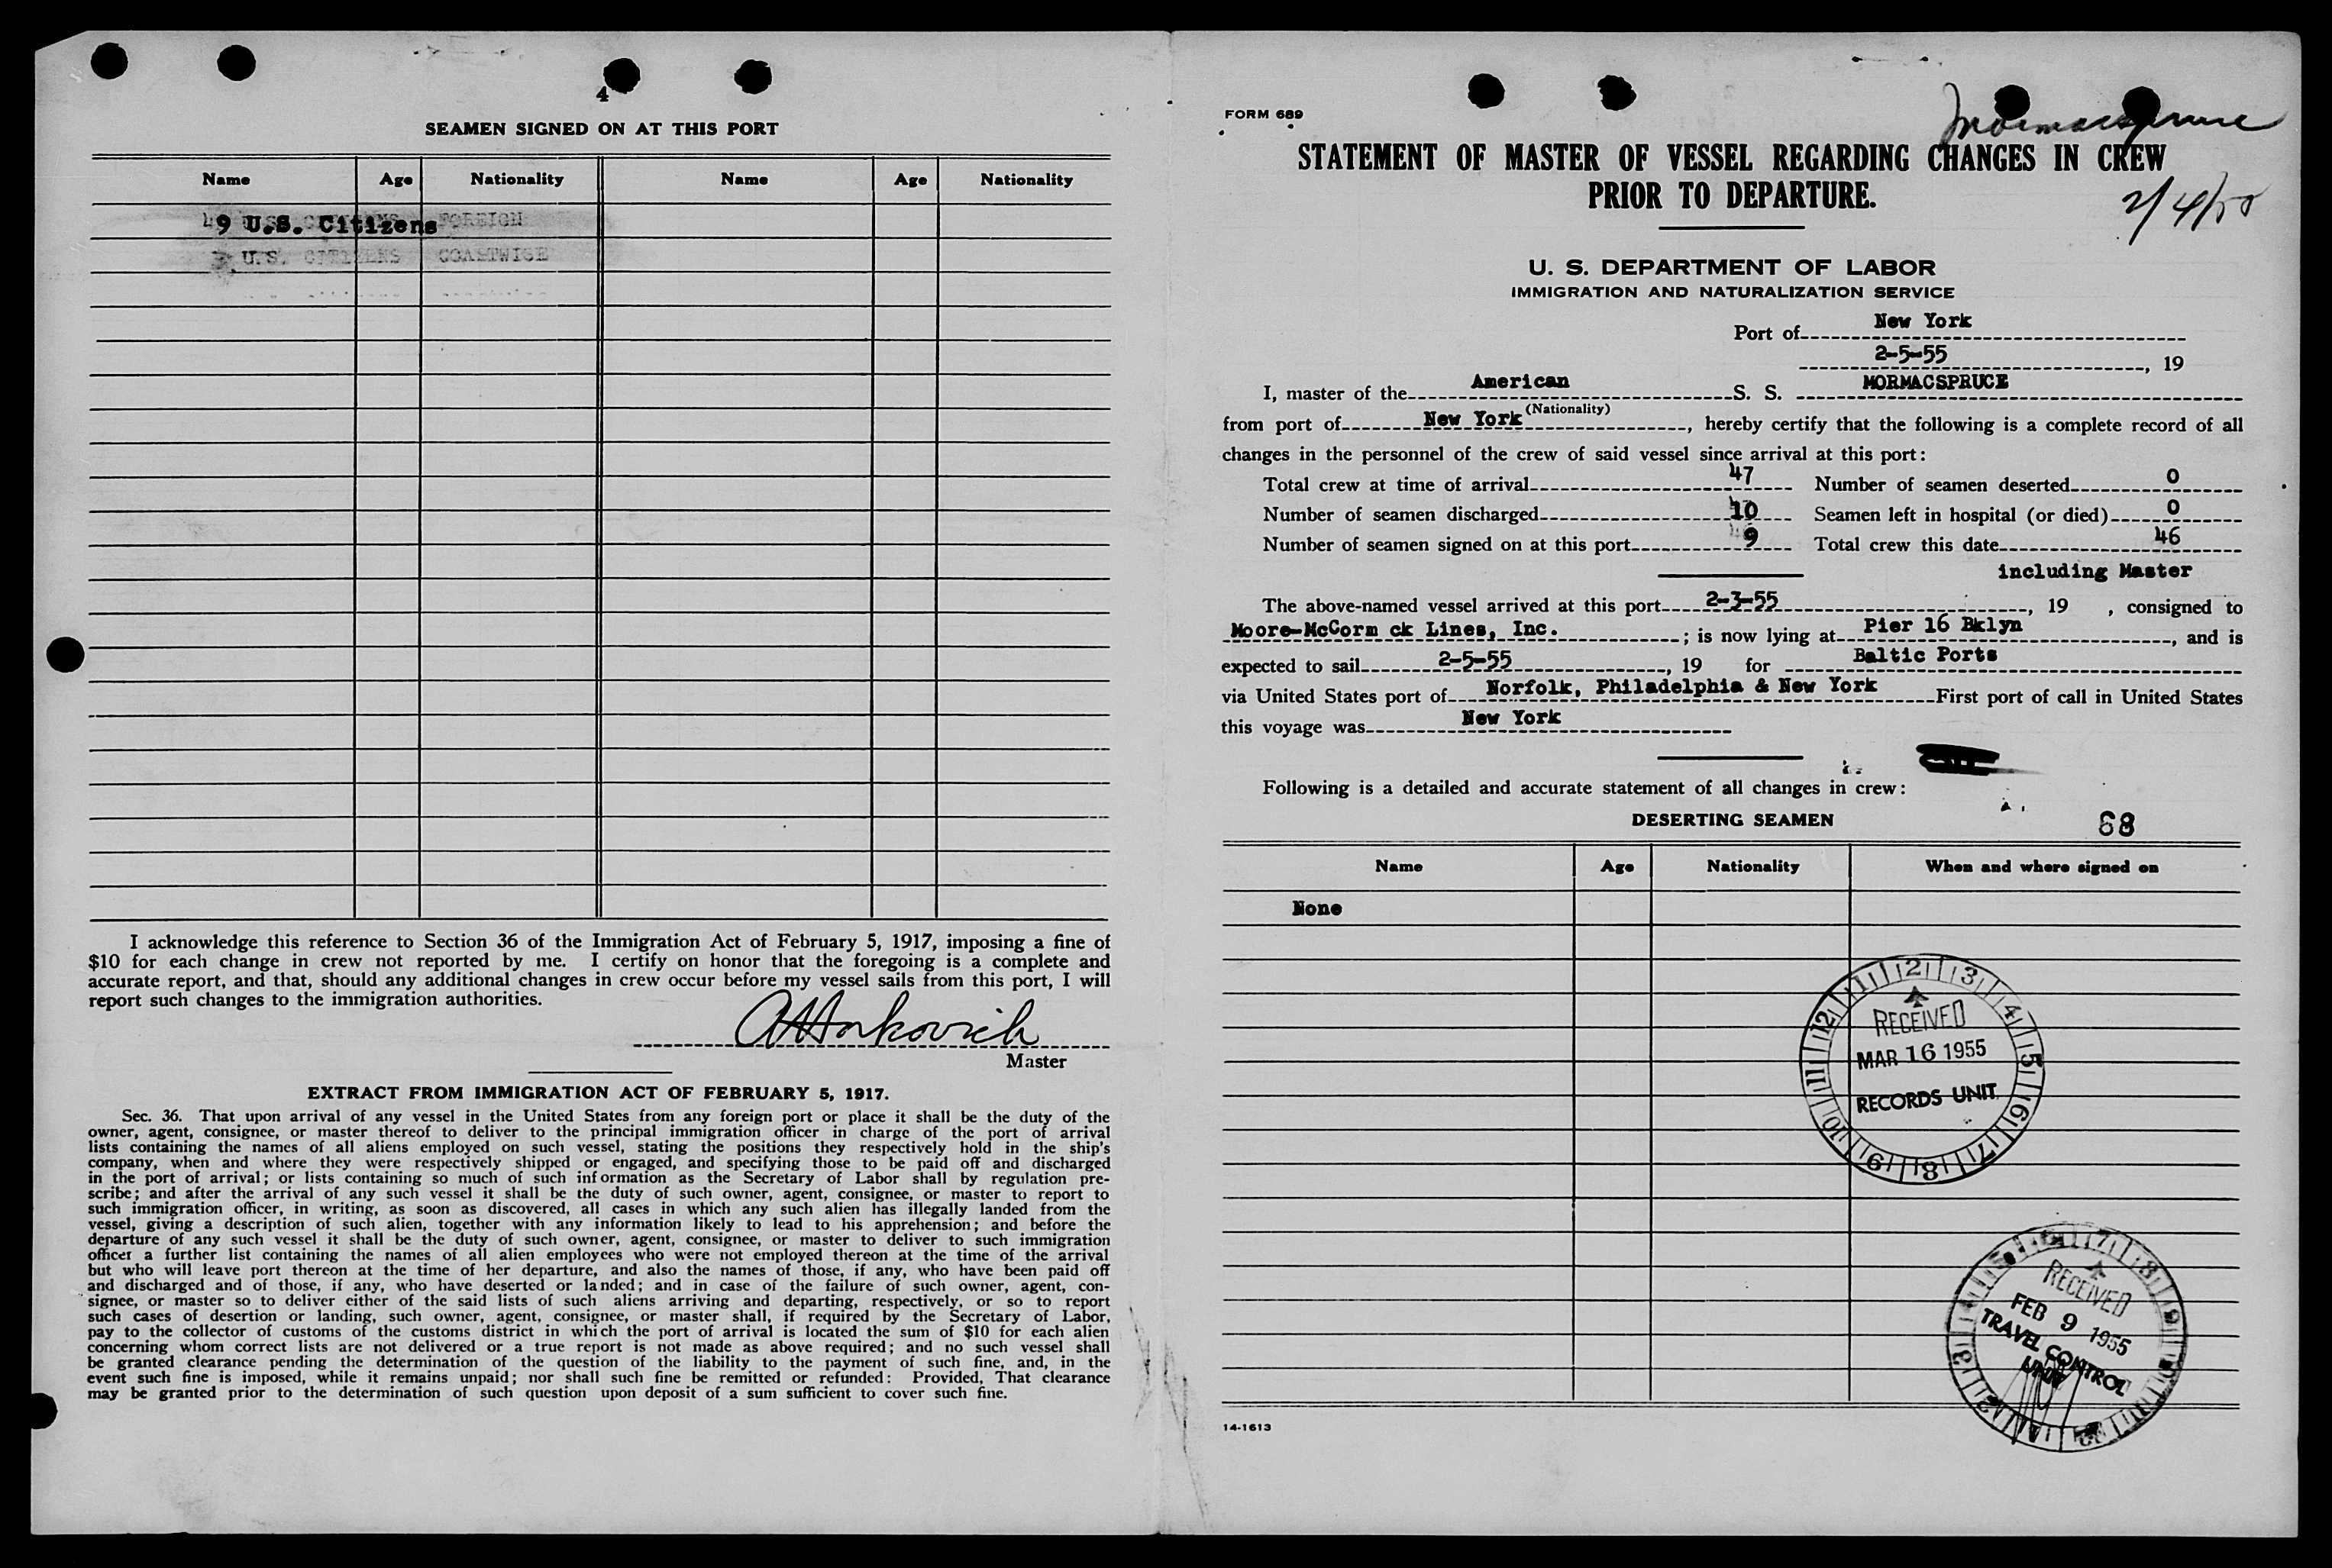 4
SEAMEN SIGNED ON AT THIS PORT
Name Age Nationality Name Age Nationality
9 U.S. Citizens FOREIGN
U.S. CITIZENS COASTWISE
I acknowledge this reference to Section 36 of the Immigration Act of February 5, 1917, imposing a fine of
$10 for each change in crew not reported by me. I certify on honor that the foregoing is a complete and
accurate report, and that, should any additional changes in crew occur before my vessel sails from this port, I will
report such changes to the immigration authorities.
Master
EXTRACT FROM IMMIGRATION ACT OF FEBRUARY 5, 1917.
Sec. 36. That upon arrival of any vessel in the United States from any foreign port or place it shall be the duty of the
owner, agent, consignee, or master thereof to deliver to the principal immigration officer in charge of the port of arrival
lists containing the names of all aliens employed on such vessel, stating the positions they respectively hold in the ship's
company, when and where they were respectively shipped or engaged, and specifying those to be paid off and discharged
in the port of arrival; or lists containing so much of such information as the Secretary of Labor shall by regulation pre-
scribe; and after the arrival of any such vessel it shall be the duty of such owner, agent, consignee, or master to report to
such immigration officer, in writing, as soon as discovered, all cases in which any such alien has illegally landed from the
vessel, giving a description of such alien, together with any information likely to lead to his apprehension; and before the
departure of any such vessel it shall be the duty of such owner, agent, consignee, or master to deliver to such immigration
officer a further list containing the names of all alien employees who were not employed thereon at the time of the arrival
but who will leave port thereon at the time of her departure, and also the names of those, if any, who have been paid off
and discharged and of those, if any, who have deserted or landed; and in case of the failure of such owner, agent, con-
signee, or master so to deliver either of the said lists of such aliens arriving and departing, respectively, or so to report
such cases of desertion or landing, such owner, agent, consignee, or master shall, if required by the Secretary of Labor,
pay to the collector of customs of the customs district in which the port of arrival is located the sum of $10 for each alien
concerning whom correct lists are not delivered or a true report is not made as above required; and no such vessel shall
be granted clearance pending the determination of the question of the liability to the payment of such fine, and, in the
event such fine is imposed, while it remains unpaid; nor shall such fine be remitted or refunded: Provided, That clearance
may be granted prior to the determination of such question upon deposit of a sum sufficient to cover such fine.
FORM 689
Mormacspruce
STATEMENT OF MASTER OF VESSEL REGARDING CHANGES IN CREW
PRIOR TO DEPARTURE.
2/4/55
U. S. DEPARTMENT OF LABOR
IMMIGRATION AND NATURALIZATION SERVICE
Port of New York
2-5-55, 19
I, master of the American S. S. MORMACSPRUCE
(Nationality)
from port of New York, hereby certify that the following is a complete record of all
changes in the personnel of the crew of said vessel since arrival at this port:
Total crew at time of arrival 47 Number of seamen deserted 0
Number of seamen discharged 10 Seamen left in hospital (or died) 0
Number of seamen signed on at this port 9 Total crew this date 46
including Master
The above-named vessel arrived at this port 2-3-55, 19 , consigned to
Moore-McCorm ck Lines, Inc. ; is now lying at Pier 16 Bklyn, and is
expected to sail 2-5-55, 19 for Baltic Ports
via United States port of Norfolk, Philadelphia & New York First port of call in United States
this voyage was New York
Following is a detailed and accurate statement of all changes in crew:
DESERTING SEAMEN
68
Name Age Nationality When and where signed on
None
1 2 3 4 5 6 7 8 9 10 11 12
RECEIVED
MAR 16 1955
RECORDS UNIT
RECEIVED
FEB 9 1955
TRAVEL CONTROL
UNIT
14-1613